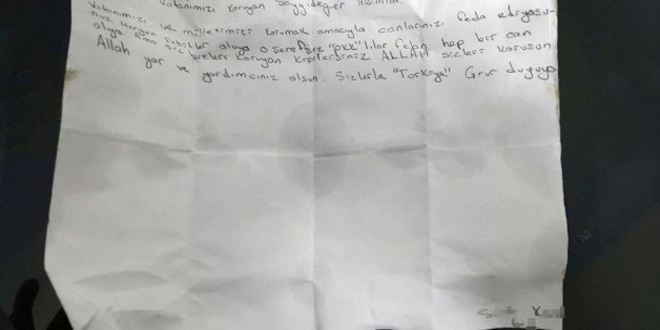 Vatanımızı koruyan saygıdeğer
Vatanımızı ve milletimizi korumak amacıyla canlarınızı feda ediyosu-
nuz hergün şehitler oluyo o şerefsiz "PKK" lılar fełan hep bir can
alıyo ama siz bizleri koruyan ALLAH sizleri korusun
Allah yar ve yardımcınız olsun. Sizlerle "Türkiye" Grur duyuyo